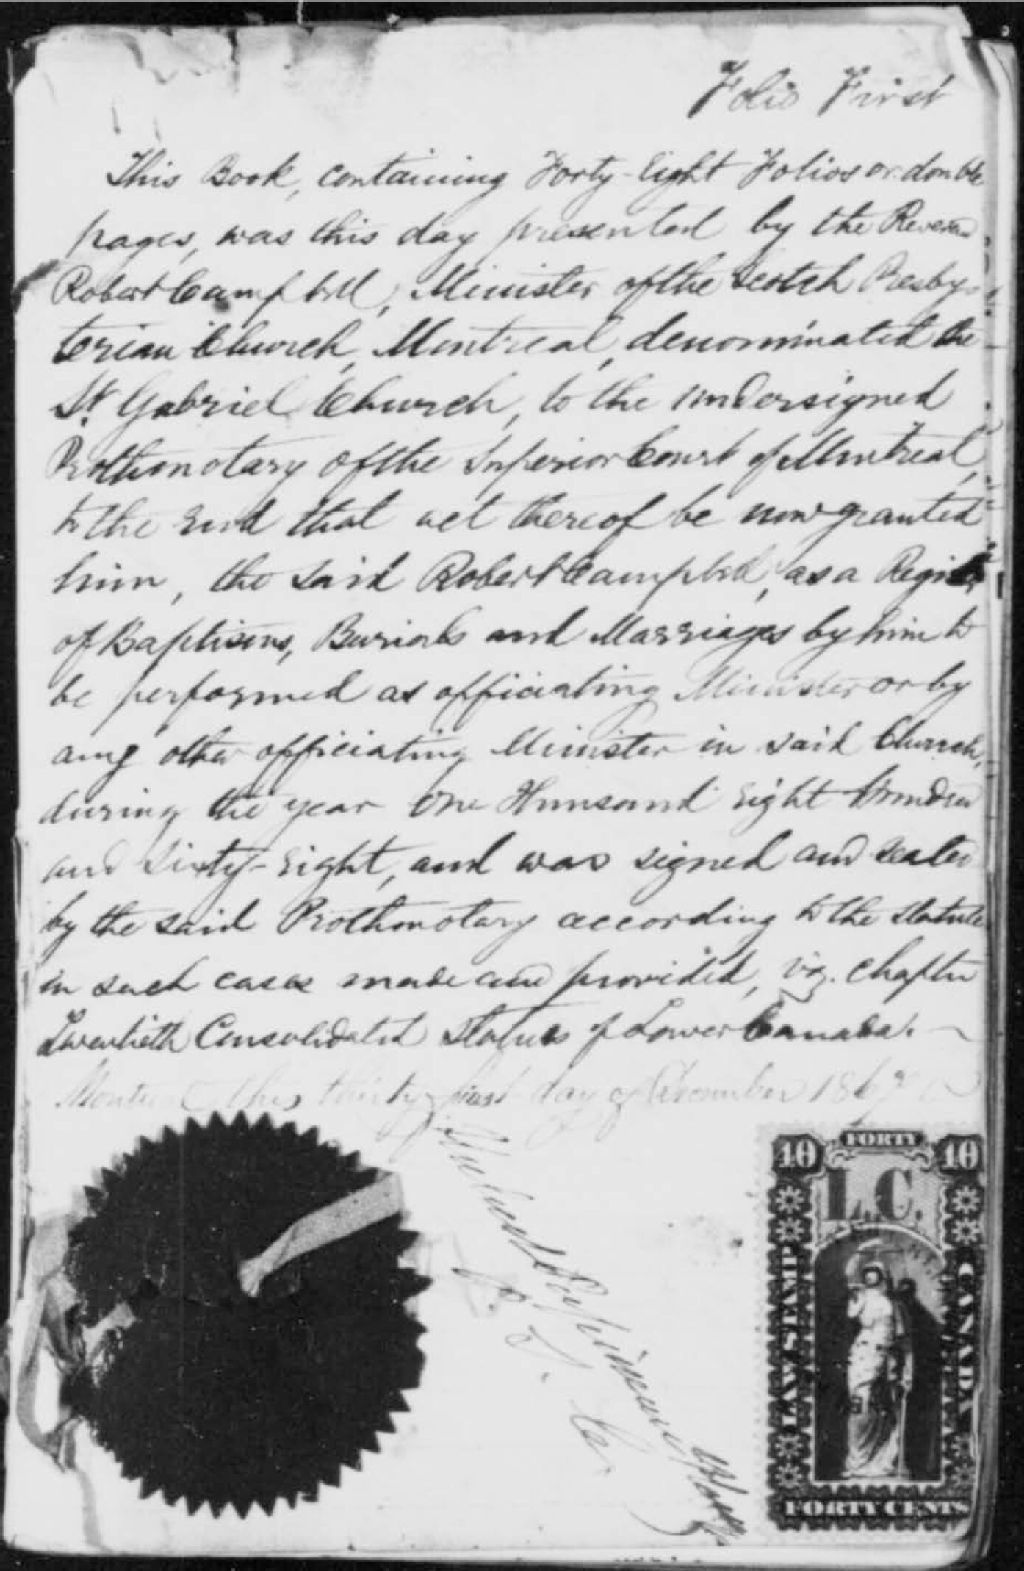 Folio First
This Book, containing Forty-Eight Folios or double
pages, was this day presented by the Reverend
Robert Campbell, Minister of the Scotch Presby-
terian Church, Montreal, denominated the
St. Gabriel Church, to the undersigned
Prothonotary of the Superior Court of Montreal,
to the End that act thereof be now granted
him, the said Robert Campbell, as a Register
of Baptisms, Burials and Marriages by him to
be performed as officiating Minister or by
any other officiating Minister in said Church,
during the year One Thousand Eight Hundred
and Sixty-Eight, and was signed and sealed
by the said Prothonotary according to the Statute
in such cases made and provided, viz. Chapter
Twentieth Consolidated Statutes of Lower Canada.
Montreal this thirty first day of December 1867
40 FORTY 40
L.C.
LAW STAMP
CANADA
FORTY CENTS